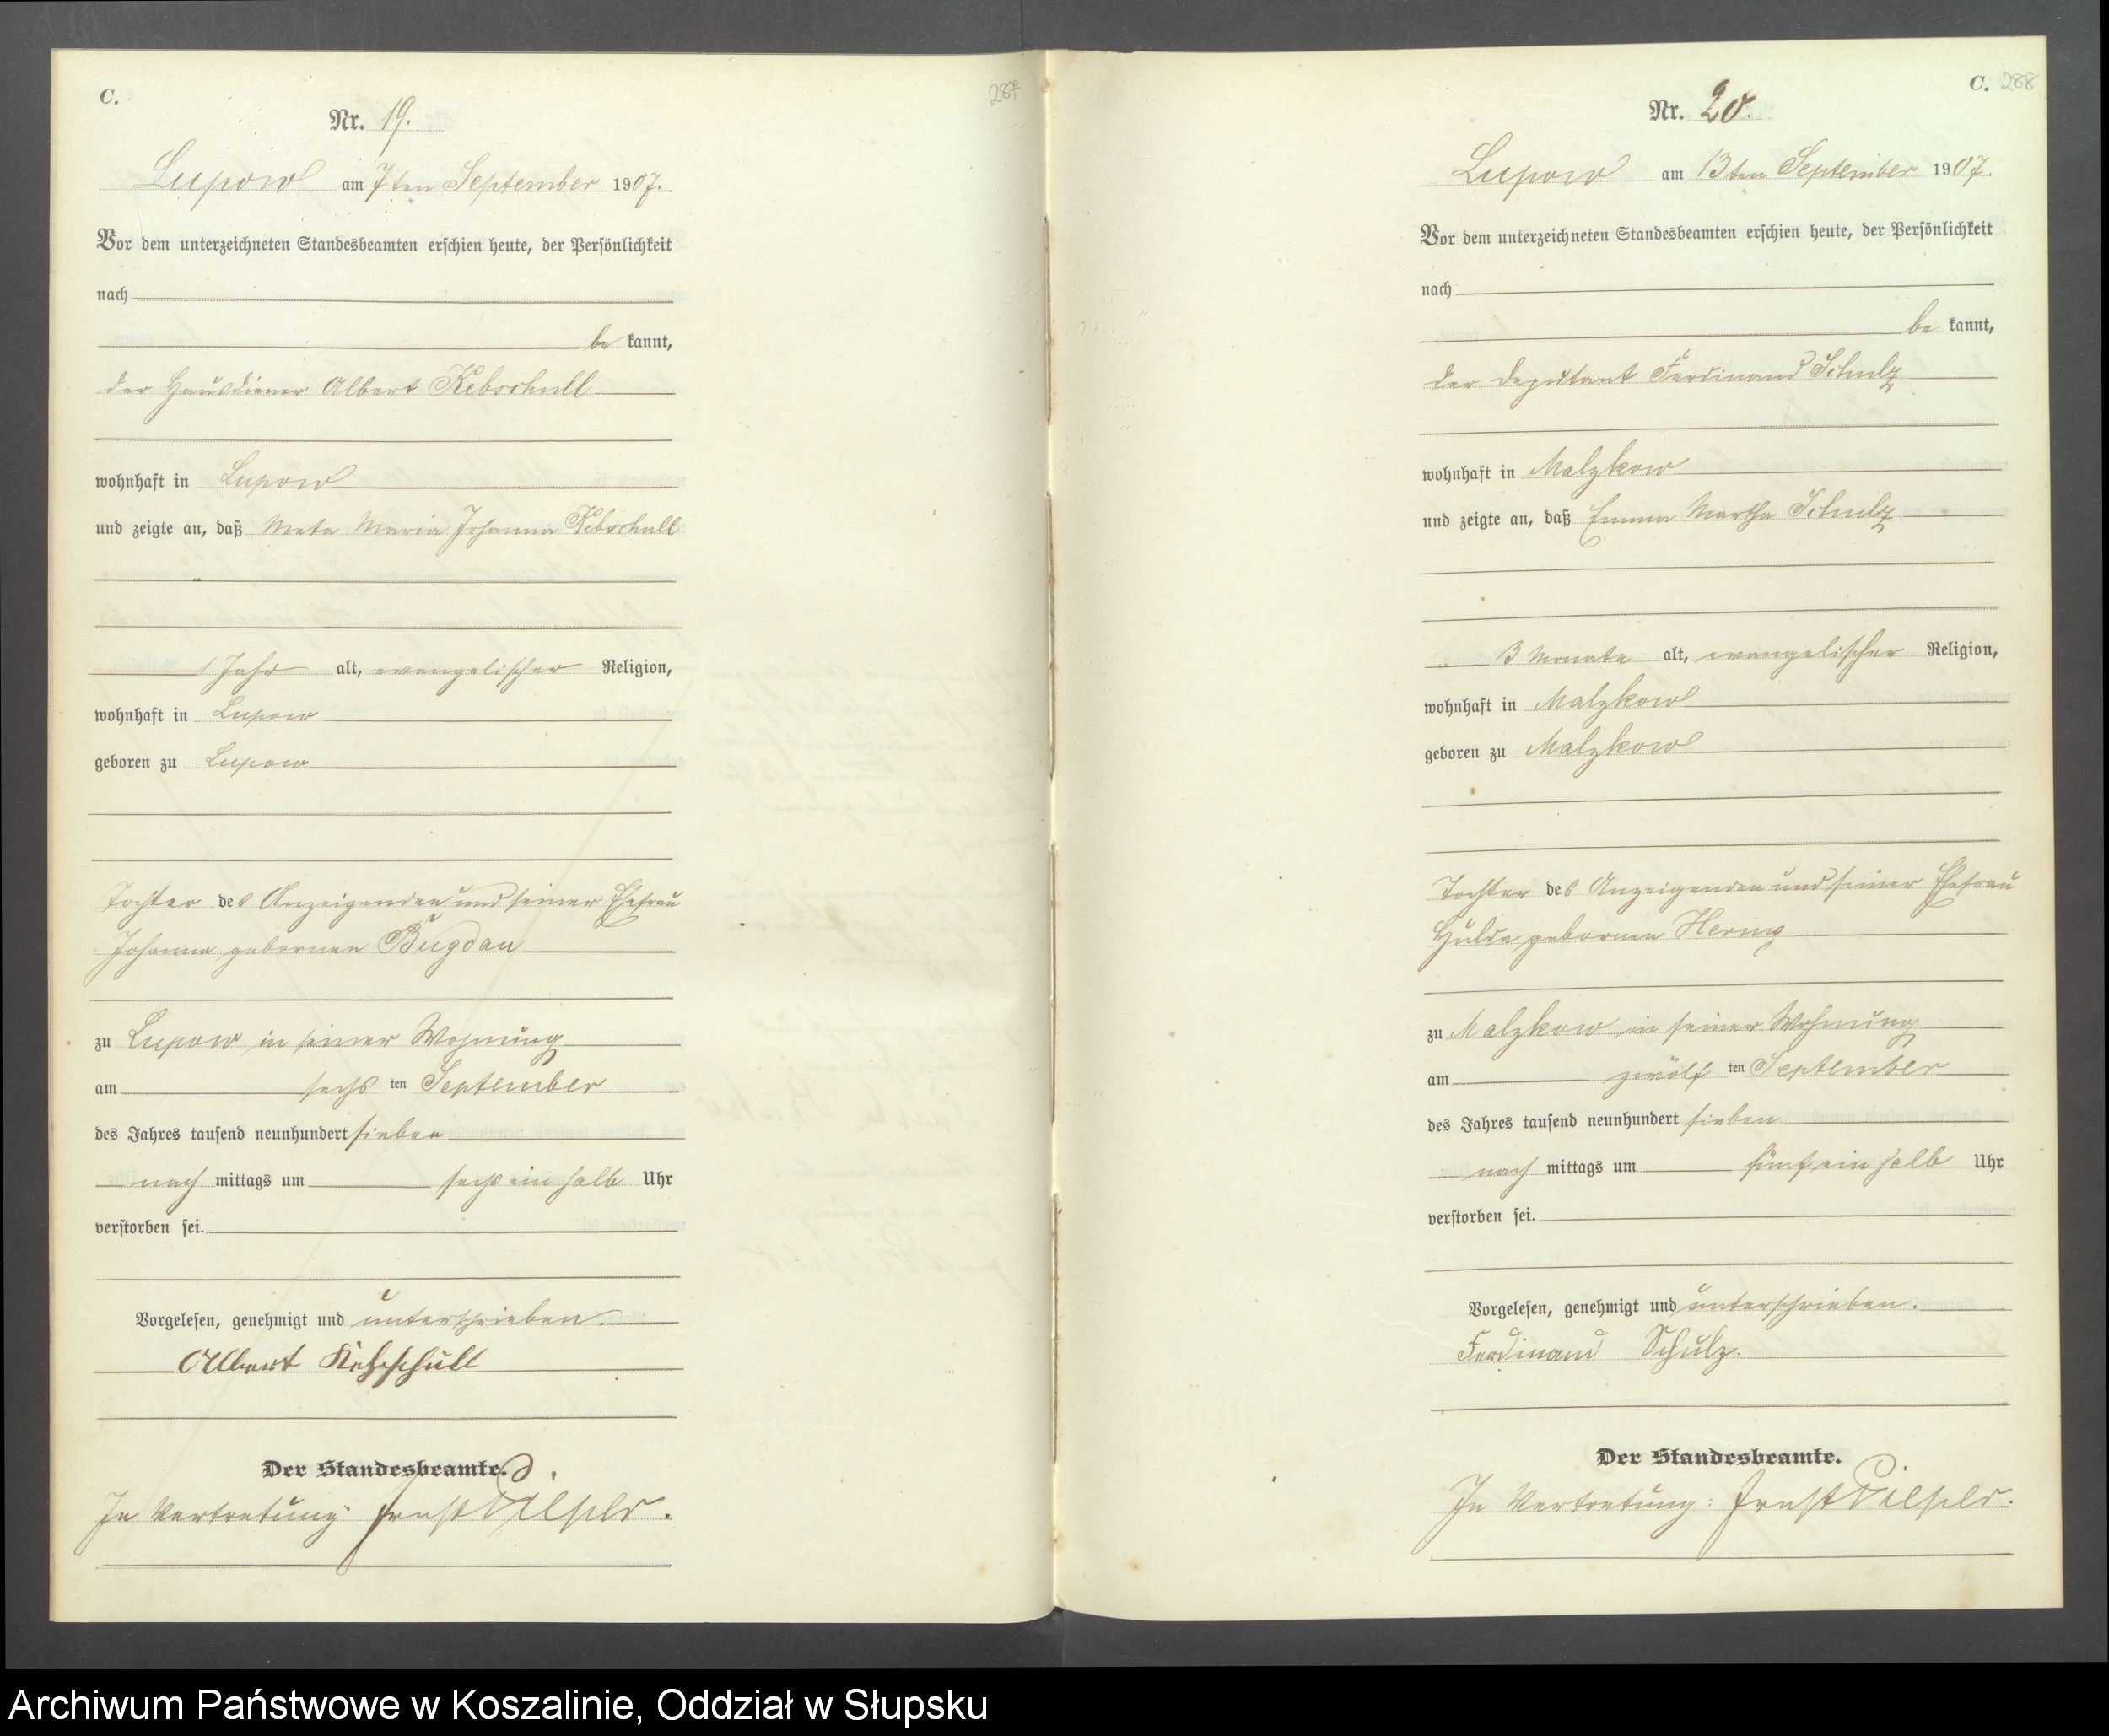 C.
287
Nr. 19.
Lupow am 7ten September 1907.
Vor dem unterzeichneten Standesbeamten erschien heute, der Persönlichkeit
nach
be kannt,
der Hausdiener Albert Kebschull
wohnhaft in Lupow
und zeigte an, daß Meta Maria Johanna Kebschull
1 Jahr alt, evangelischer Religion,
wohnhaft in Lupow
geboren zu Lupow
Tochter des Anzeigenden und seiner Ehefrau
Johanna gebornen Bugdau
zu Lupow in seiner Wohnung
am sechs ten September
des Jahres tausend neunhundert sieben
nach mittags um sechs ein halb Uhr
verstorben sei.
Vorgelesen, genehmigt und unterschrieben.
Albert Kebschull
Der Standesbeamte.
In Vertretung Ernst
C. 288
Nr. 20.
Lupow am 13ten September 1907.
Vor dem unterzeichneten Standesbeamten erschien heute, der Persönlichkeit
nach
be kannt,
der Deputant Ferdinand Schulz
wohnhaft in Malzkow
und zeigte an, daß Emma Martha Schulz
3 Monate alt, evangelischer Religion,
wohnhaft in Malzkow
geboren zu Malzkow
Tochter des Anzeigenden und seiner Ehefrau
Hulda gebornen Hering
zu Malzkow in seiner Wohnung
am zwölf ten September
des Jahres tausend neunhundert sieben
nach mittags um fünf ein halb Uhr
verstorben sei.
Vorgelesen, genehmigt und unterschrieben.
Ferdinand Schulz.
Der Standesbeamte.
In Vertretung: Ernst
Archiwum Państwowe w Koszalinie, Oddział w Słupsku